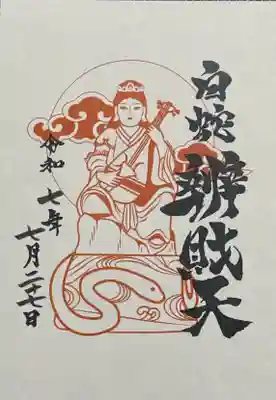 白蛇辨財天
令和七年
七月二十七日